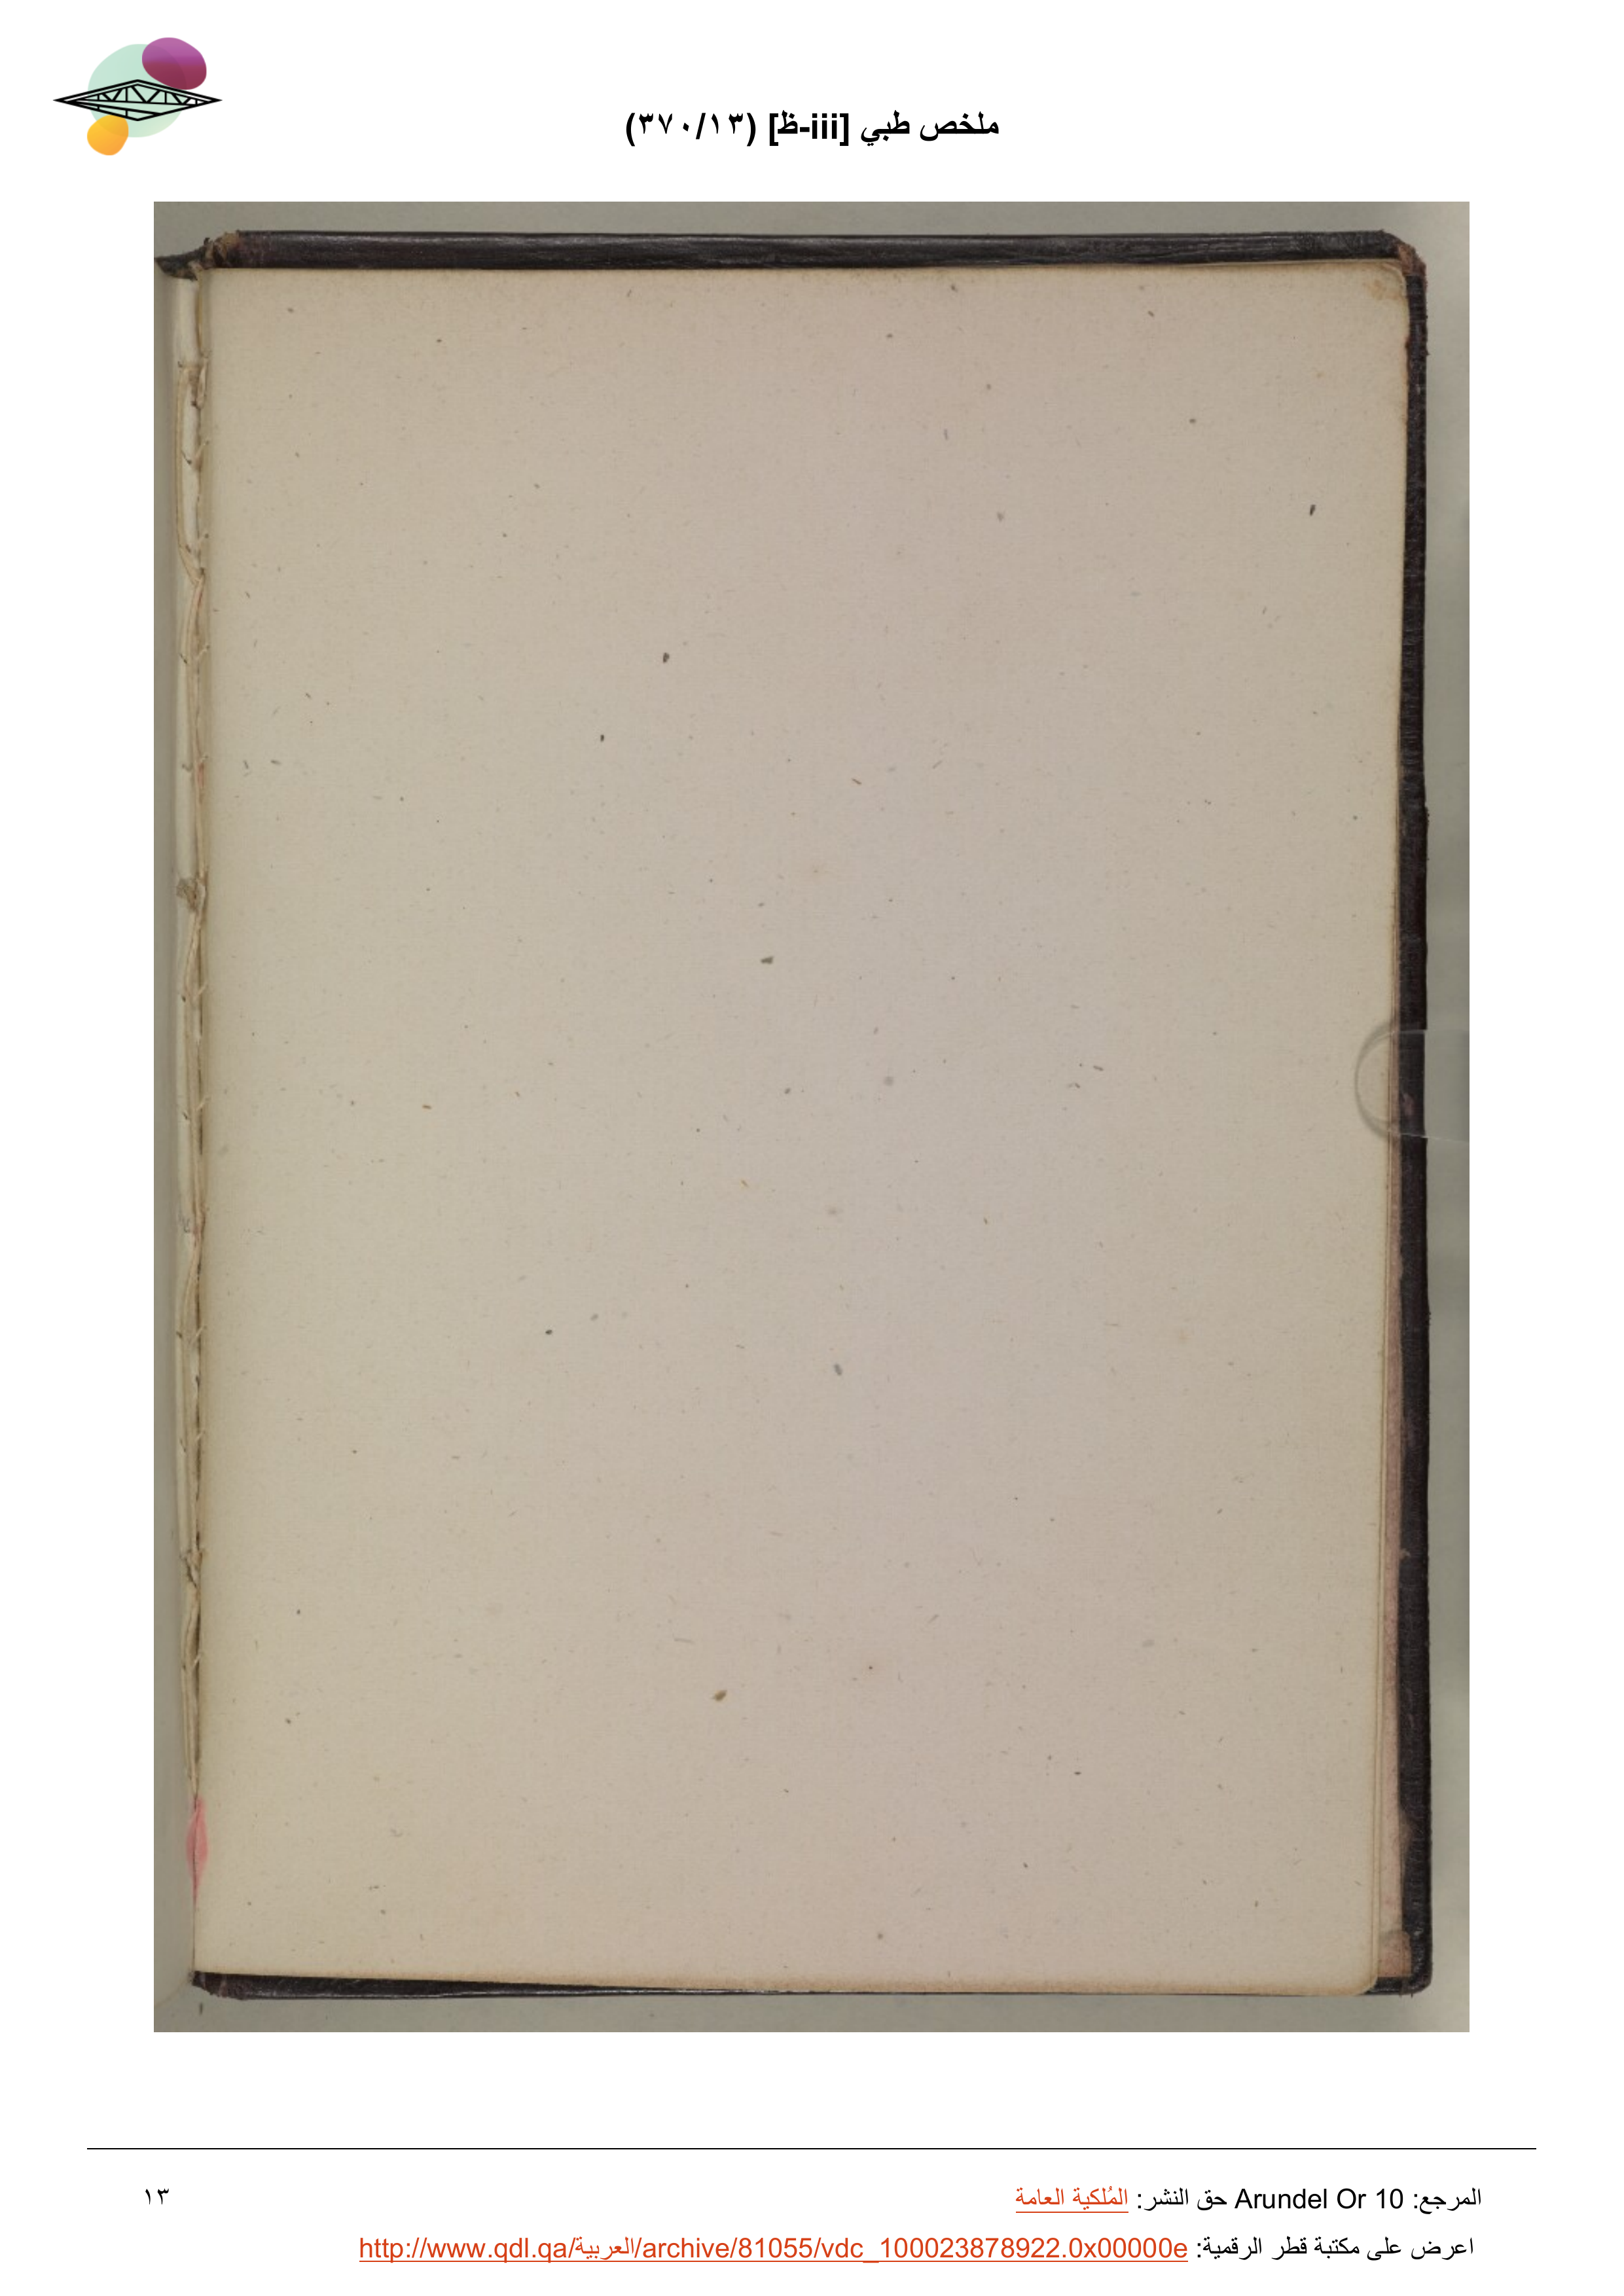 ملخص طبي [iii-ظ] (٣٧٠/١٣)
المرجع: Arundel Or 10 حق النشر: المُلكية العامة
١٣
اعرض على مكتبة قطر الرقمية: http://www.qdl.qa/العربية/archive/81055/vdc_100023878922.0x00000e